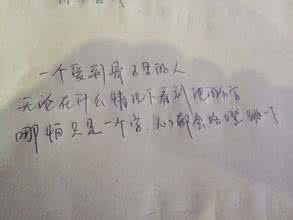 一个爱到骨子里的人
无论在什么情况下看到 他的名字
哪怕只是一个字,心都会 跳一下